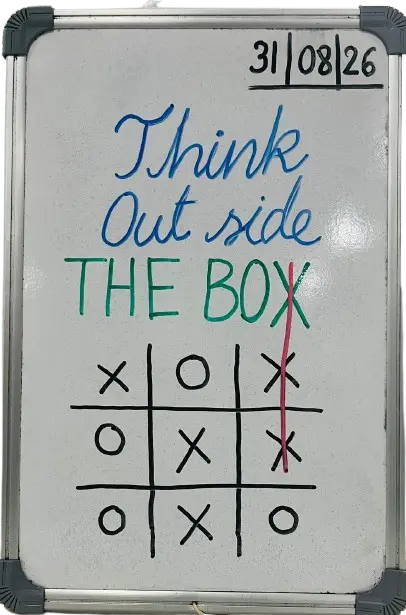 31|08|26
Think
Out side
THE BOX
X O X
O X X
O X O